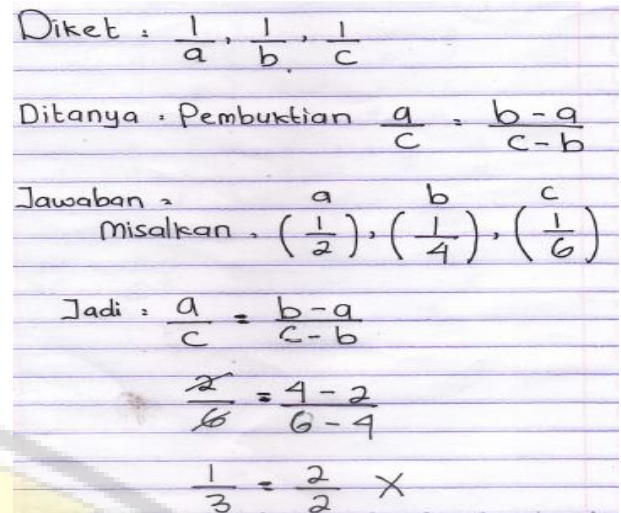 Diket : 1/a , 1/b , 1/c
Ditanya : Pembuktian a/c = b-a/c-b
Jawaban :
a b c
misalkan . (1/2) , (1/4) , (1/6)
Jadi : a/c = b-a/c-b
2/6 = 4-2/6-4
1/3 = 2/2 X